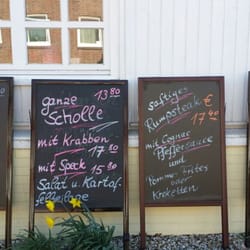 ganze 13.80
Scholle
mit Krabben
17.50
mit Speck 15.80
Salat u. Kartof-
felbeilage
saftiges
Rumpsteak €
17.40
mit Cognac
Pfeffersauce
und
Pommes Frites
oder
Kroketten